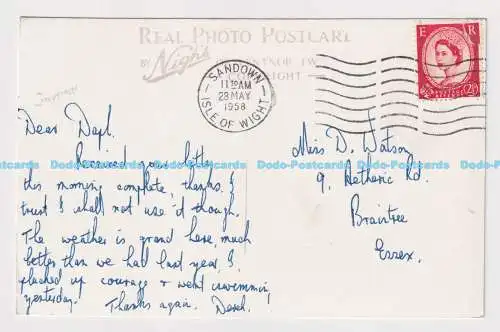 REAL PHOTO POSTCARD
BY Nigh's VENTNOR I.W.
SANDOWN
11 15 AM
28 MAY
1958
ISLE OF WIGHT
E R
2½D 2½D
Dear Dapl.
Received your letter
this morning complete, thanks. I
trust I shall not use it though.
The weather is grand here, much
better than we had last year, I
plucked up courage & went swimming
yesterday. Thanks again, Derek.
Miss D. Watson,
9, Rd.
Braintree
Essex.
Dodo-Postcards Dodo-Postcards Dodo-Postcards Dodo-Postcards Dodo-Postcards